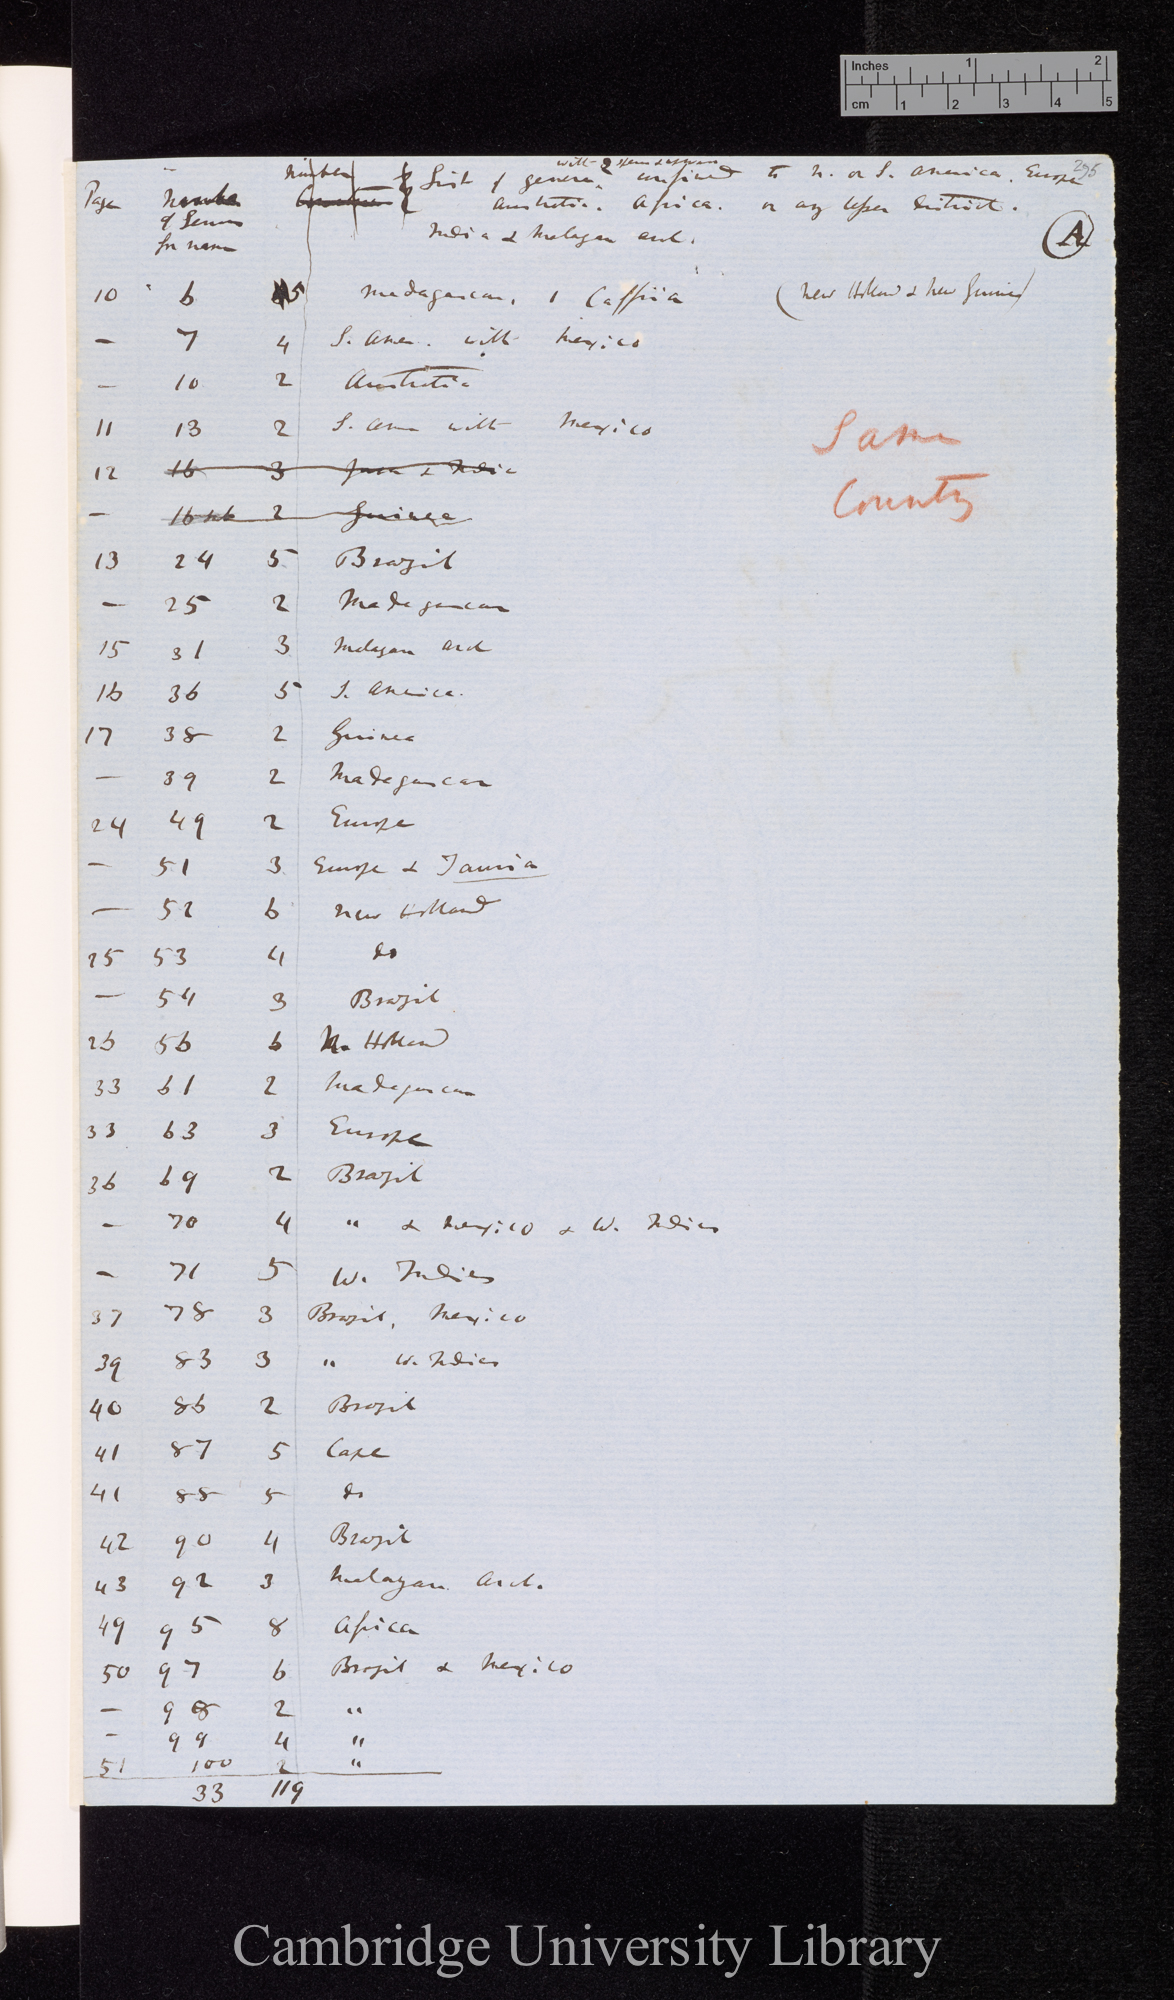 Inches 1 2
cm 1 2 3 4 5
295
with 2
Page Number of Genus for name Number List of genera confined to N. or S. America. Europe
Australia. Africa. or any lesser district.
India & Malayan arch.
A
10 6 5 Madagascar, 1 Caffria (New Holland & New Guinea)
— 7 4 S. Amer. with Mexico
— 10 2 Australia
11 13 2 S. Amer with Mexico
Same
12 16 3 Java & India
County
— 16 2 Guinea
13 24 5 Brazil
— 25 2 Madagascar
15 31 3 Malayan Arch
16 36 5 S. America.
17 38 2 Guinea
— 39 2 Madagascar
24 49 2 Europe
— 51 3 Europe & Tauria
— 52 6 New Holland
25 53 4 do
— 54 3 Brazil
26 56 6 N. Holland
33 61 2 Madagascar
33 63 3 Europe
36 69 2 Brazil
— 70 4 " & Mexico & W. Indies
— 71 5 W. Indies
37 78 3 Brazil, Mexico
39 83 3 " W. Indies
40 86 2 Brazil
41 87 5 Cape
41 88 5 do
42 90 4 Brazil
43 92 3 Malayan Arch.
49 95 8 Africa
50 97 6 Brazil & Mexico
— 98 2 "
— 99 4 "
51 100 2 "
33 119
Cambridge University Library